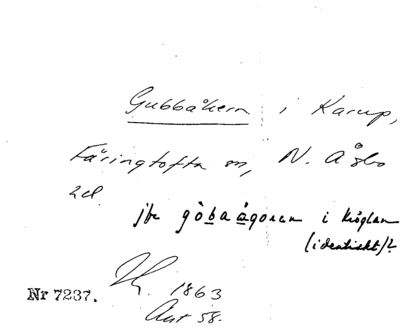 Gubbåkern i Karup,
Färingtofta sn, N. Åsbo
hd
jfr gòbaágoren i krôglan
(identiskt)?
1863
Nr 7237.
Ant 58.